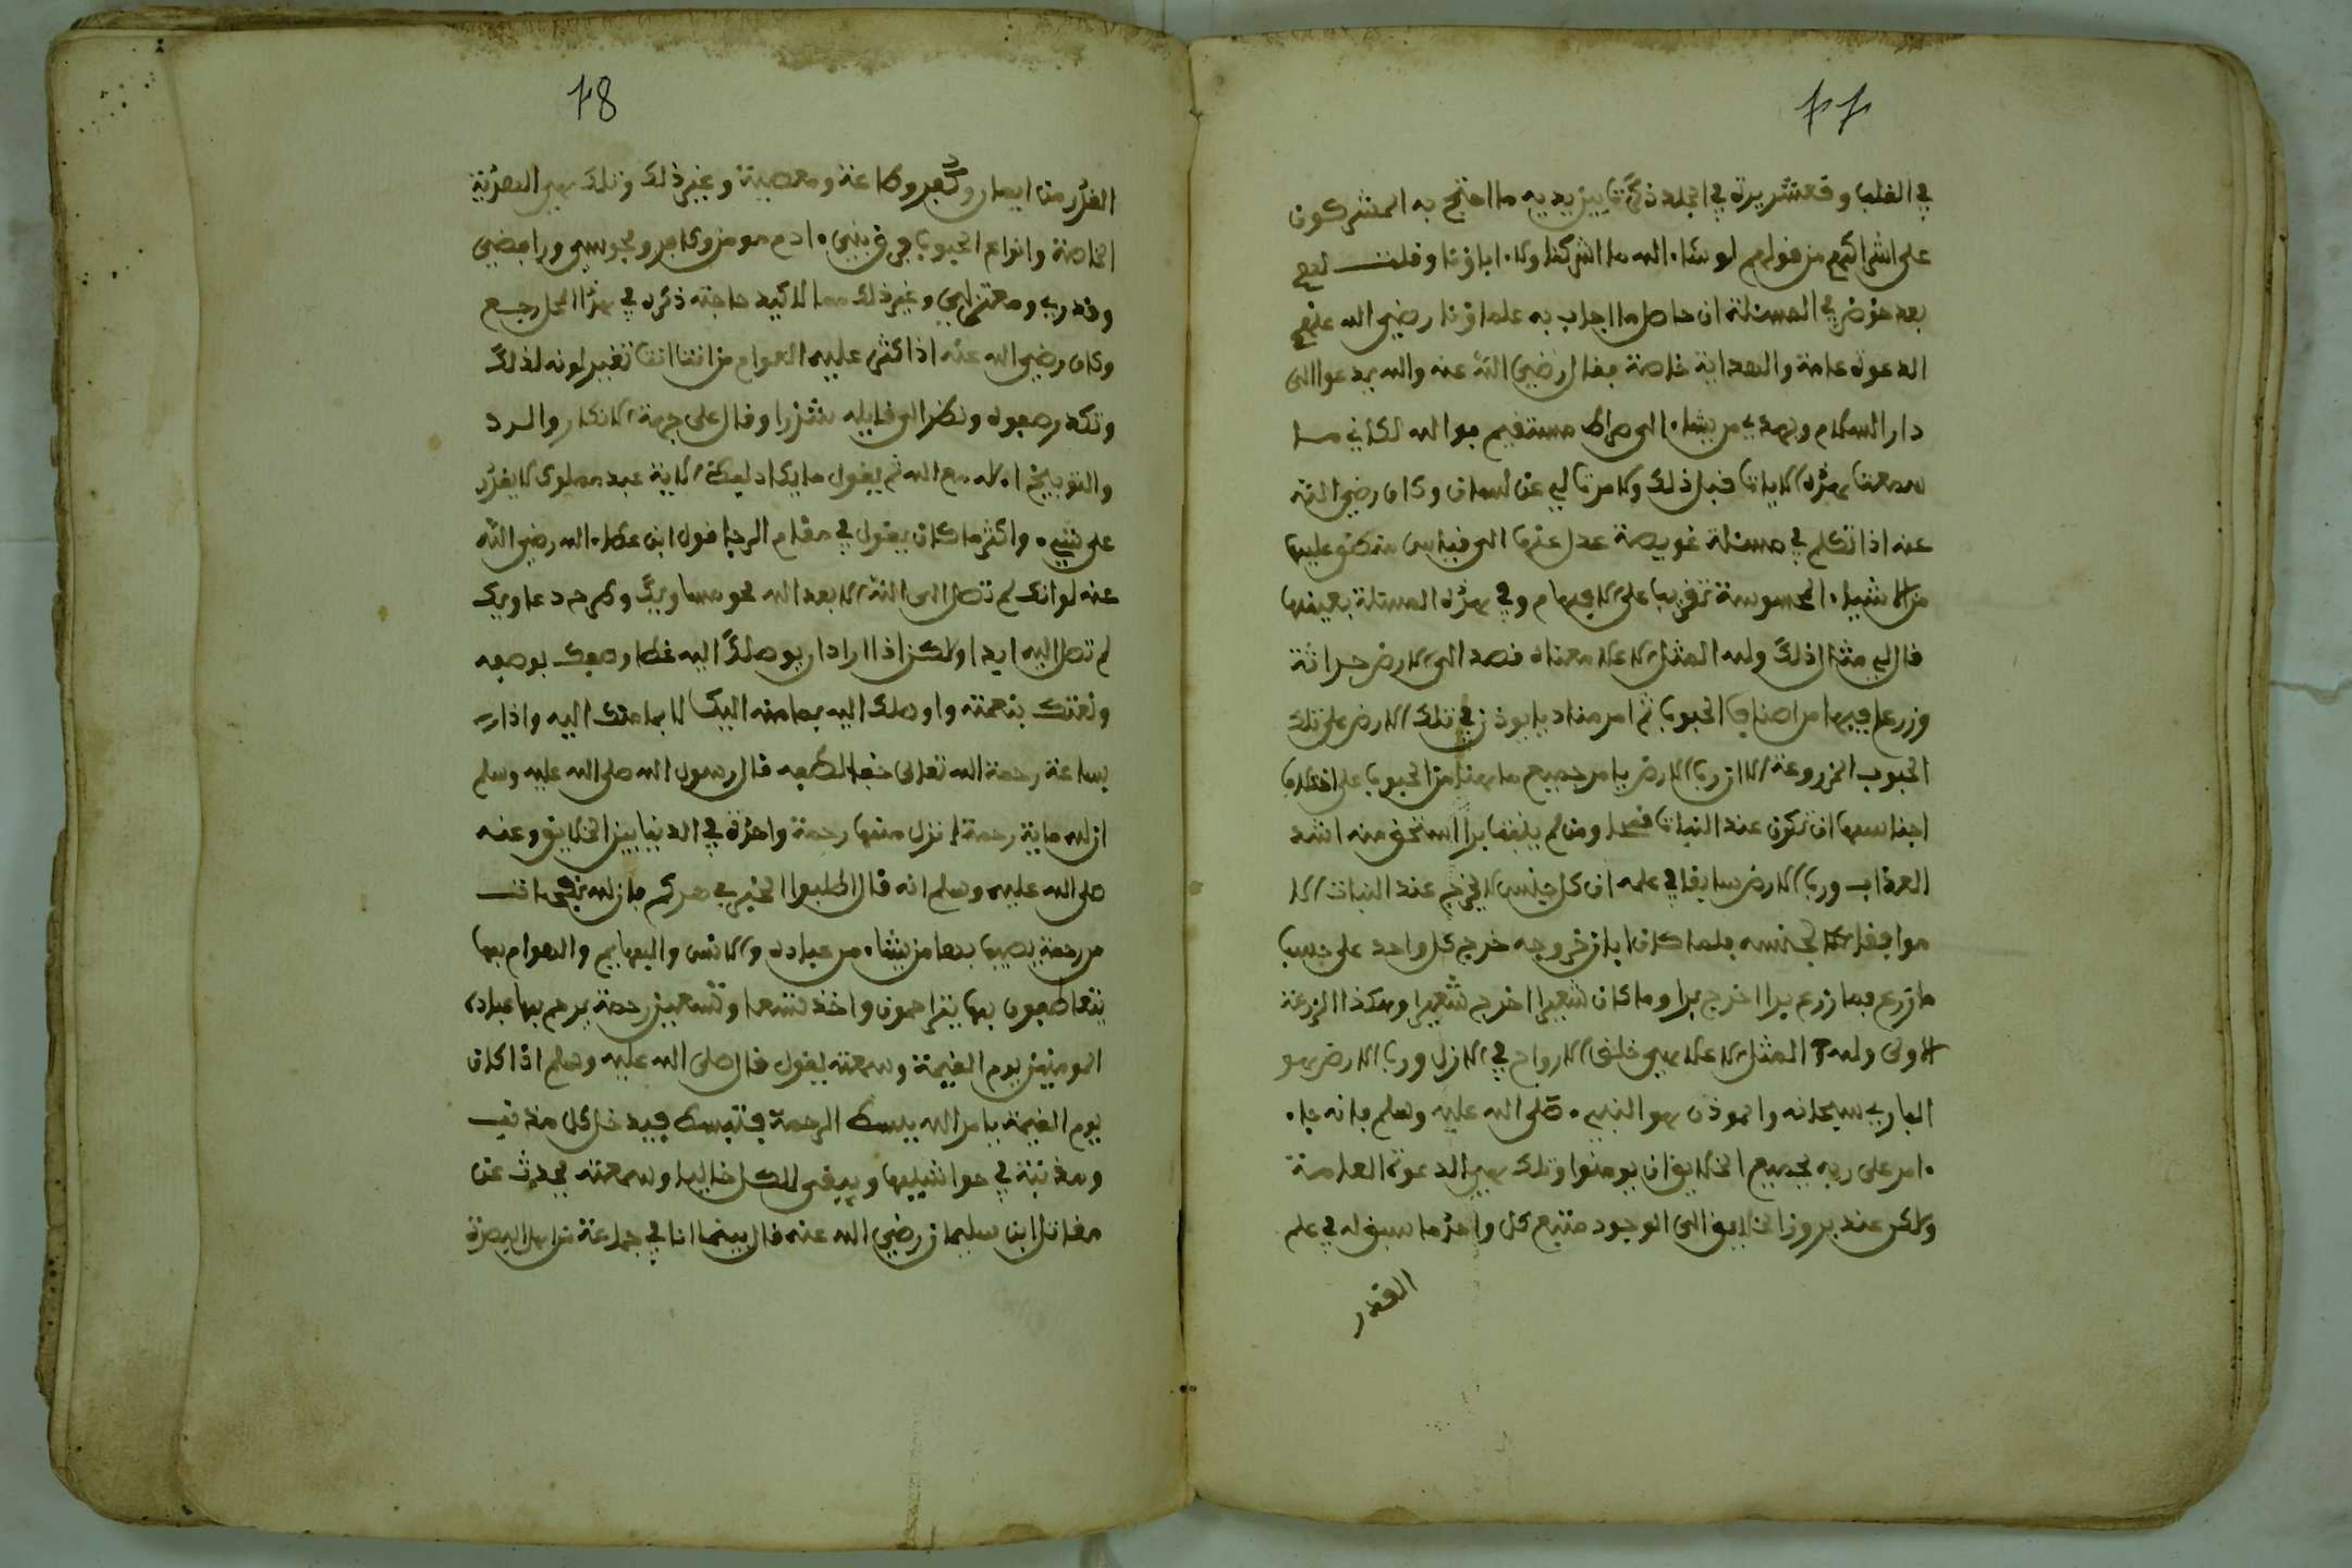 ٢٢
في القلب وقشعريرة في الجلد ذكرت ما يزيد به ما احتج به المشركون
على اشراكهم من قولهم لو شاء الله ما اشركنا ولا ءاباؤنا وقلت لهم
بعد خوض في المسئلة ان حاصل ما اجاب به علماؤنا رضي الله عنهم
الدعوة عامة والهداية خاصة فقال رضي الله عنه والله يدعوا الى
دار السلام ويهدي من يشاء الى صراط مستقيم فوالله لكاني ما
سمعت هذه الايات قبل ذلك ولا مرت لي على لسان وكان رضي الله
عنه اذا تكلم في مسئلة عويصة عدل عنها الى قياس متفق عليها
من الاشياء المحسوسة تقريبا على الافهام وفي هذه المسئلة بعينها
قال لي مثال ذلك ولله المثل الاعلا معناه قصد الى الارض حراثة
وزرع فيها من اصناف الحبوب ثم امر مناديا يوذن في تلك الارض على تلك
الحبوب المزروعة الا ان رب الارض يامر جميع ما هنا من الحبوب على اختلاف
اجناسها ان تكون عند النبات قمحا ومن لم ينبت برا استحق منه اشد
العذاب ورب الارض سابقا في علمه ان كل جنس لا يخرج عند النبات الا
موافقا لجنسه فلما كان ابان خروجه خرج كل واحد على حسب
ما زرع فما زرع برا اخرج برا وما كان شعيرا اخرج شعيرا وهكذا الزرعة
الاولى ولله المثل الاعلا هي خلق الارواح في الازل ورب الارض هو
الباري سبحانه والموذن هو النبيء صلى الله عليه وسلم فانه جاء
امر على ربه لجميع الخلايق ان يومنوا وتلك هي الدعوة العامة
ولاكن عند بروز الخلايق الى الوجود متبع كل واحد ما سبق له في علم
القدر
٢8
القدر من ايمان وكفر وطاعة ومعصية وغير ذلك وتلك هي الهداية
الخاصة وانواع الحبوب هي في بني ءادم مومن وكافر ومجوسي ورافضي
وقدري ومعتزلي وغير ذلك مما لا كبير حاجة ذكره في هذا المحل رجع
وكان رضي الله عنه اذا كثر عليه العوام من انت انت تغير لونه لذلك
وتكدر صفوه ونظر الى قايله شزرا وقال على جهة الانكار والرد
والتوبيخ اءلاه مع الله ثم يقول ما يكاد ليفك الاية عبد مملوك لا يقدر
على شيء واكثر ما كان يقول في مقام الرجا قول ابن عطاء الله رضي الله
عنه لو انك لم تصل الى الله الا بعد محو مساويك ومحو دعاويك
لم تصل اليه ابدا ولاكن اذا اراد ان يوصلك اليه غطا وصفك بوصفه
ونعتك بنعته واوصلك اليه بما منه اليك لا بما منك اليه واذا
ساعة رحمة الله تعالى خفا لطفه قال رسول الله صلى الله عليه وسلم
ان لله ماية رحمة انزل منها رحمة واحدة في الدنيا بين الخلايق وعنه
صلى الله عليه وسلم انه قال اطلبوا الخير في دهركم فان لله نفحات
من رحمة يصيب بها من يشاء من عباده والانس والبهايم والهوام بها
يتعاطفون بها يتراحمون واخذ تسعا وتسعين رحمة يرحم بها عباده
المومنين يوم القيمة وسمعته يقول قال صلى الله عليه وسلم اذا كان
يوم القيمة يامر الله ببسط الرحمة فتبسط فيدخل كل مذنب
ومذنبة في حواشيها ويبقى الكل خاليا وسمعته يحدث عن
مقاتل ابن سليمان رضي الله عنه قال بينما انا في جماعة من اهل البصرة